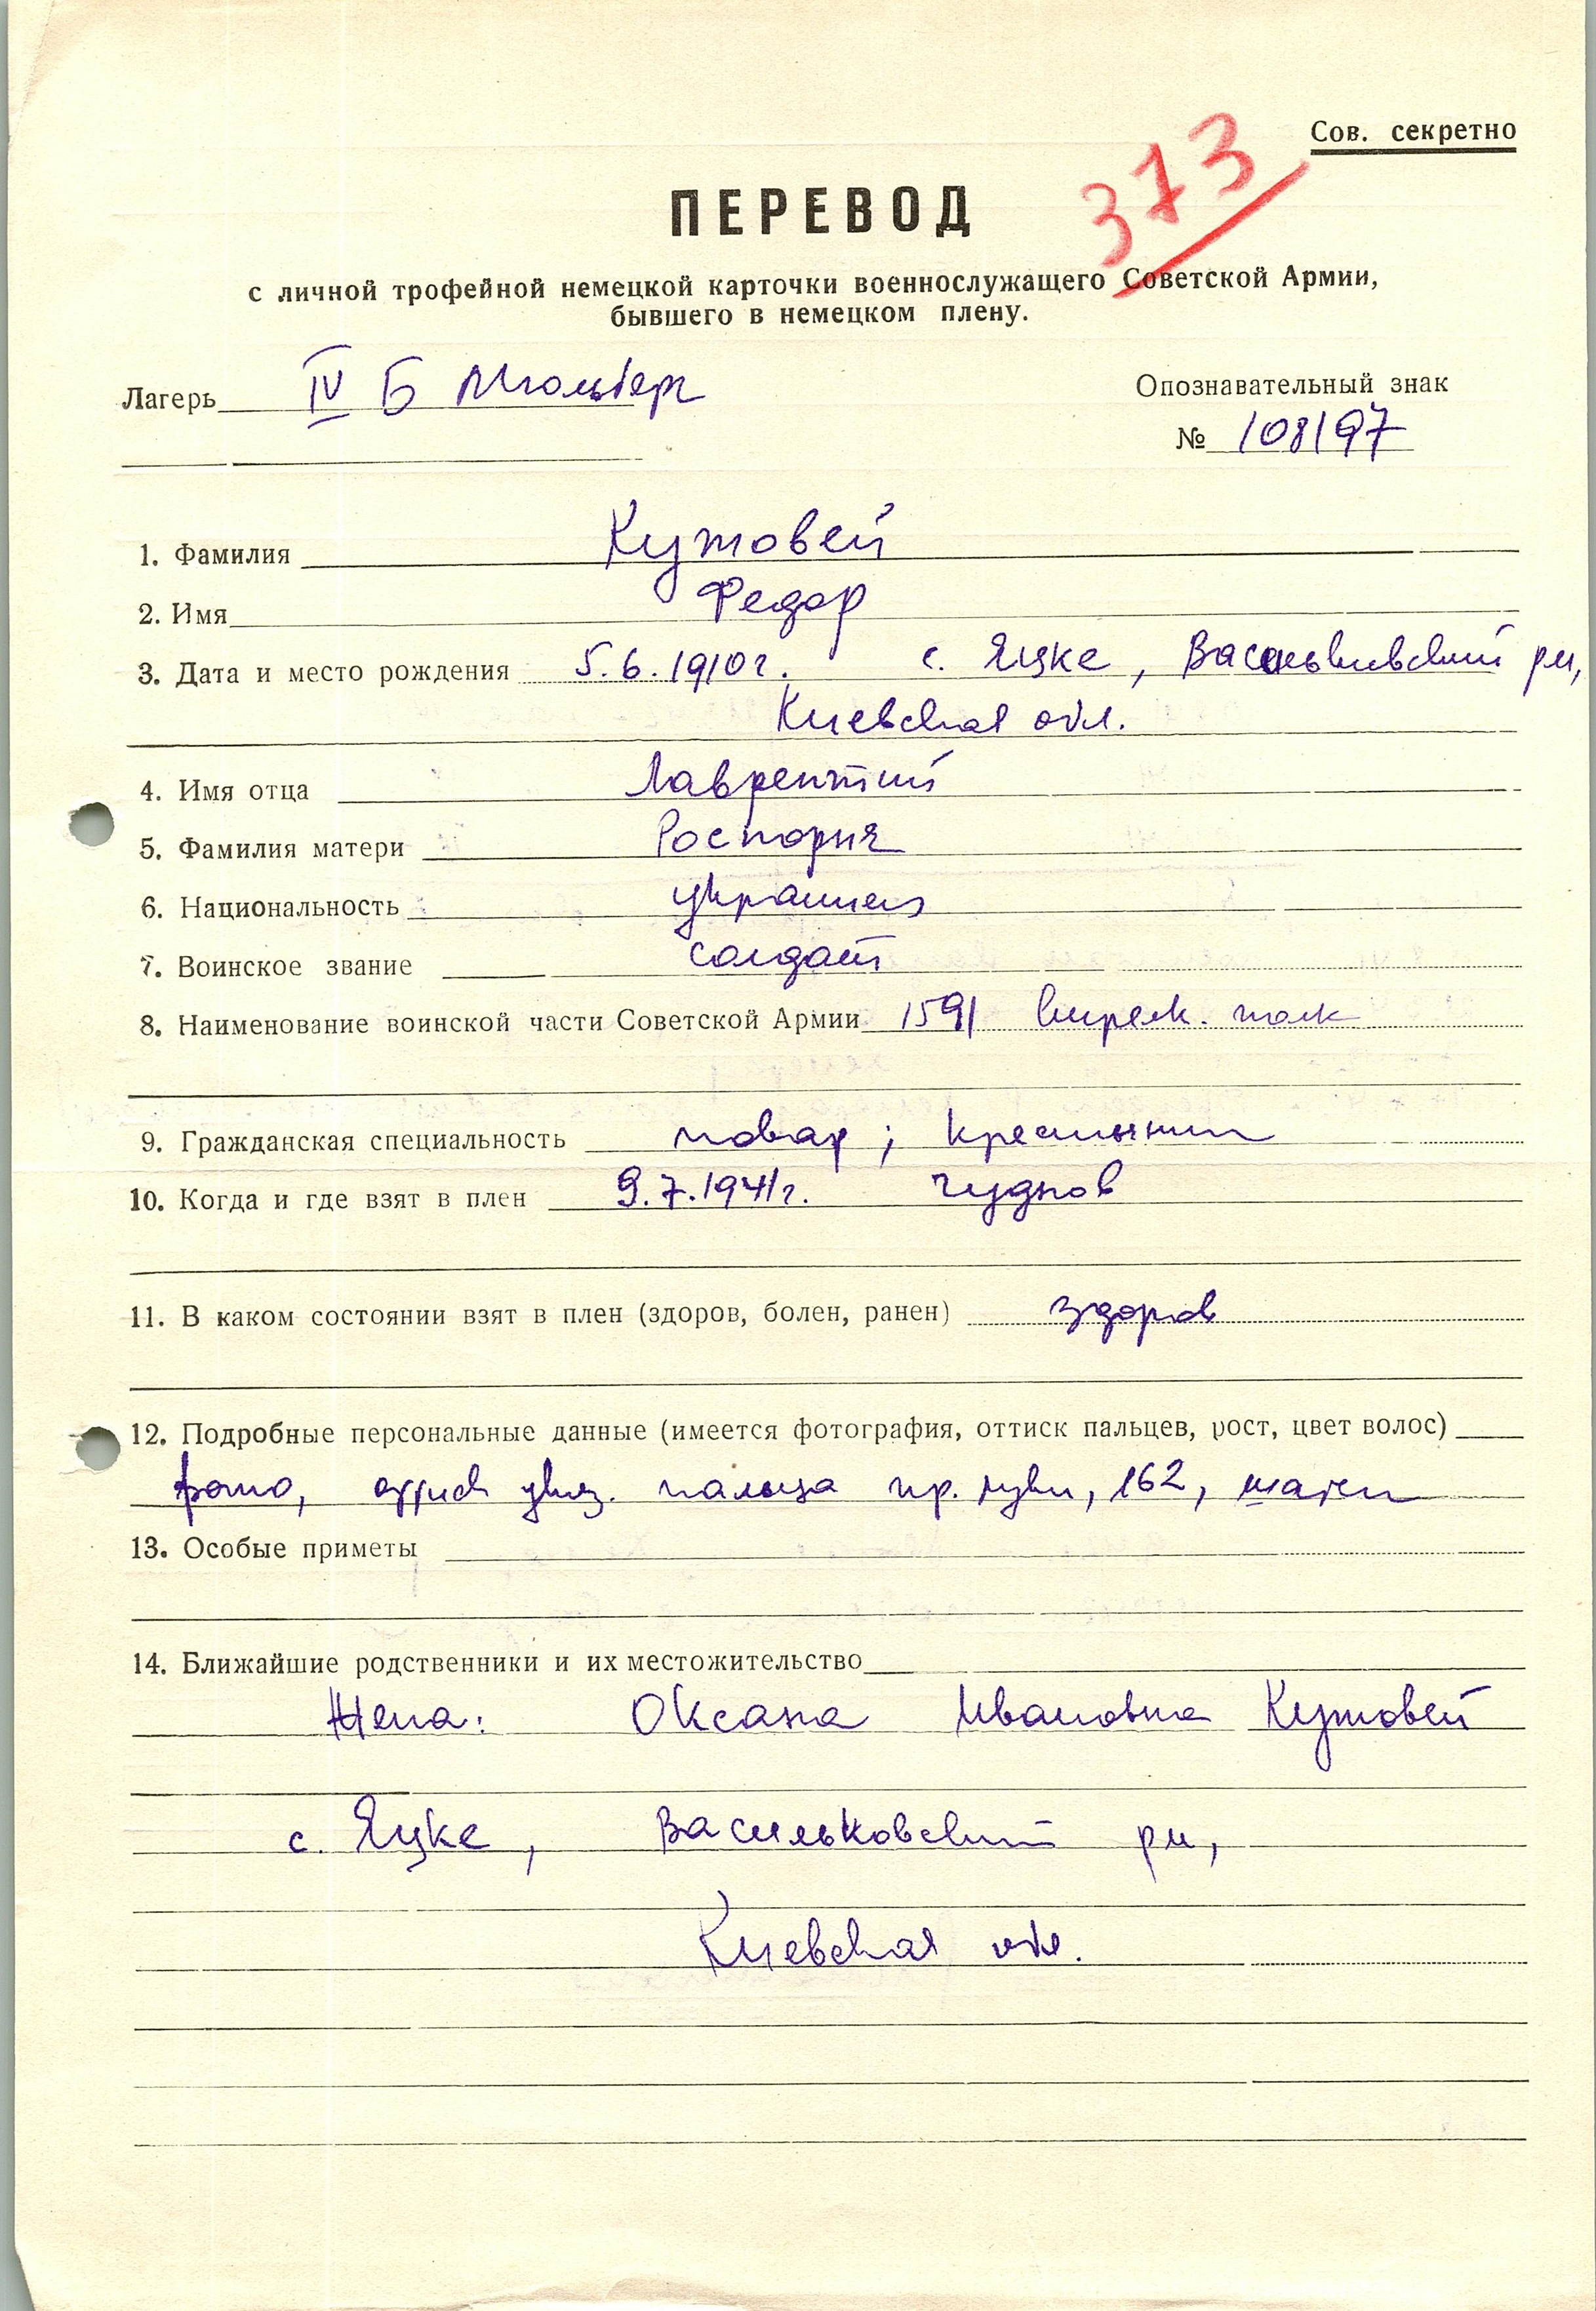 Сов. секретно
373
ПЕРЕВОД
с личной трофейной немецкой карточки военнослужащего Советской Армии,
бывшего в немецком плену.
Лагерь IV Б Мюльберг
Опознавательный знак
№ 108197
1. Фамилия Кутовей
2. Имя Федор
3. Дата и место рождения 5.6.1910 г. с. Яцке, Васильковский рн,
Киевская обл.
4. Имя отца Лаврентий
5. Фамилия матери
6. Национальность украинец
7. Воинское звание солдат
8. Наименование воинской части Советской Армии 1591 стрелк. полк
9. Гражданская специальность повар; крестьянин
10. Когда и где взят в плен 9.7.1941 г. Чуднов
11. В каком состоянии взят в плен (здоров, болен, ранен) здоров
12. Подробные персональные данные (имеется фотография, оттиск пальцев, рост, цвет волос)
фото, оттиск указ. пальца пр. руки, 162, шатен
13. Особые приметы
14. Ближайшие родственники и их местожительство
Жена: Оксана Ивановна Кутовей
с. Яцке, Васильковский рн,
Киевская обл.